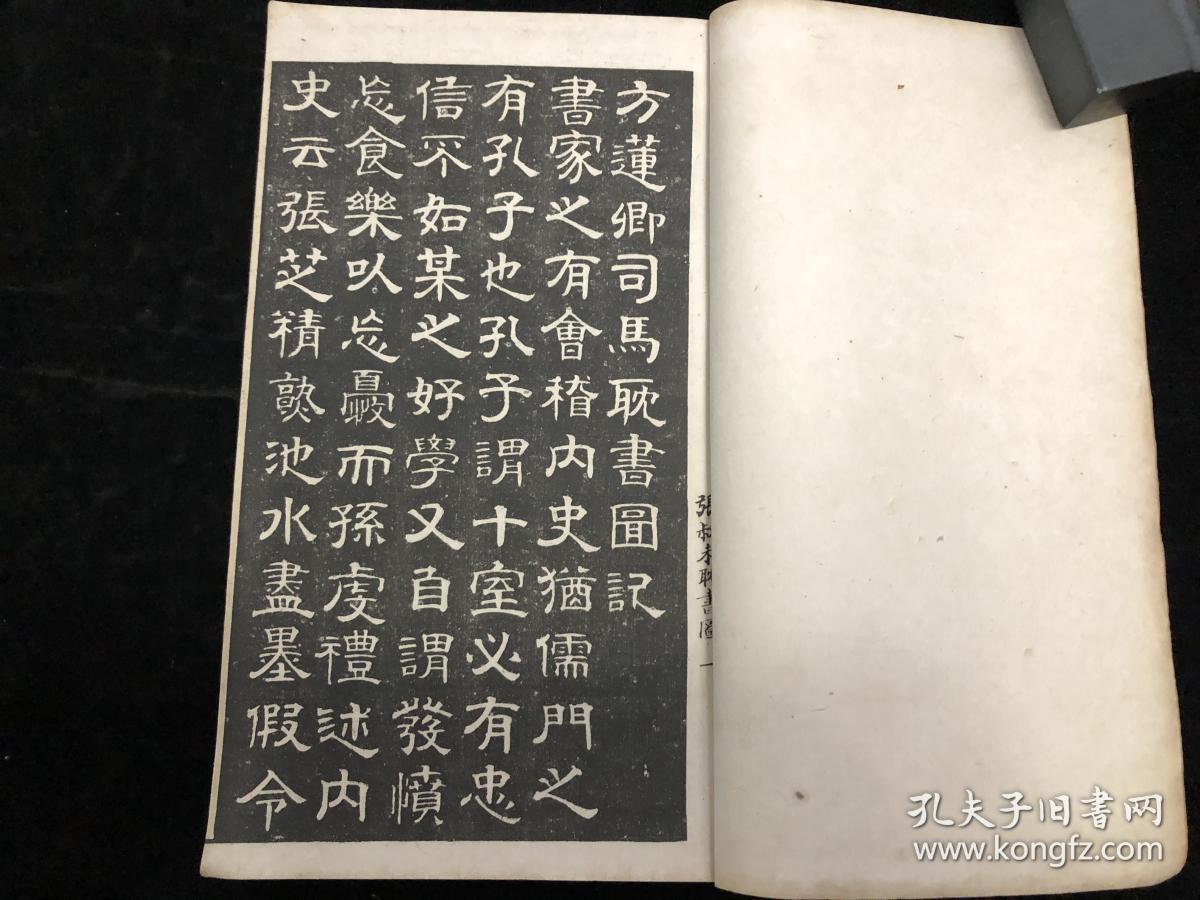 方蓮卿司馬耽書圖記
書家之有會稽内史猶儒門之
有孔子也孔子謂十室必有忠
信不如某之好學又自謂發憤
忘食樂以忘憂而孫虔禮述内
史云張芝精熟池水盡墨假令
張叔未耽書圖 一
孔夫子旧书网
www.kongfz.com